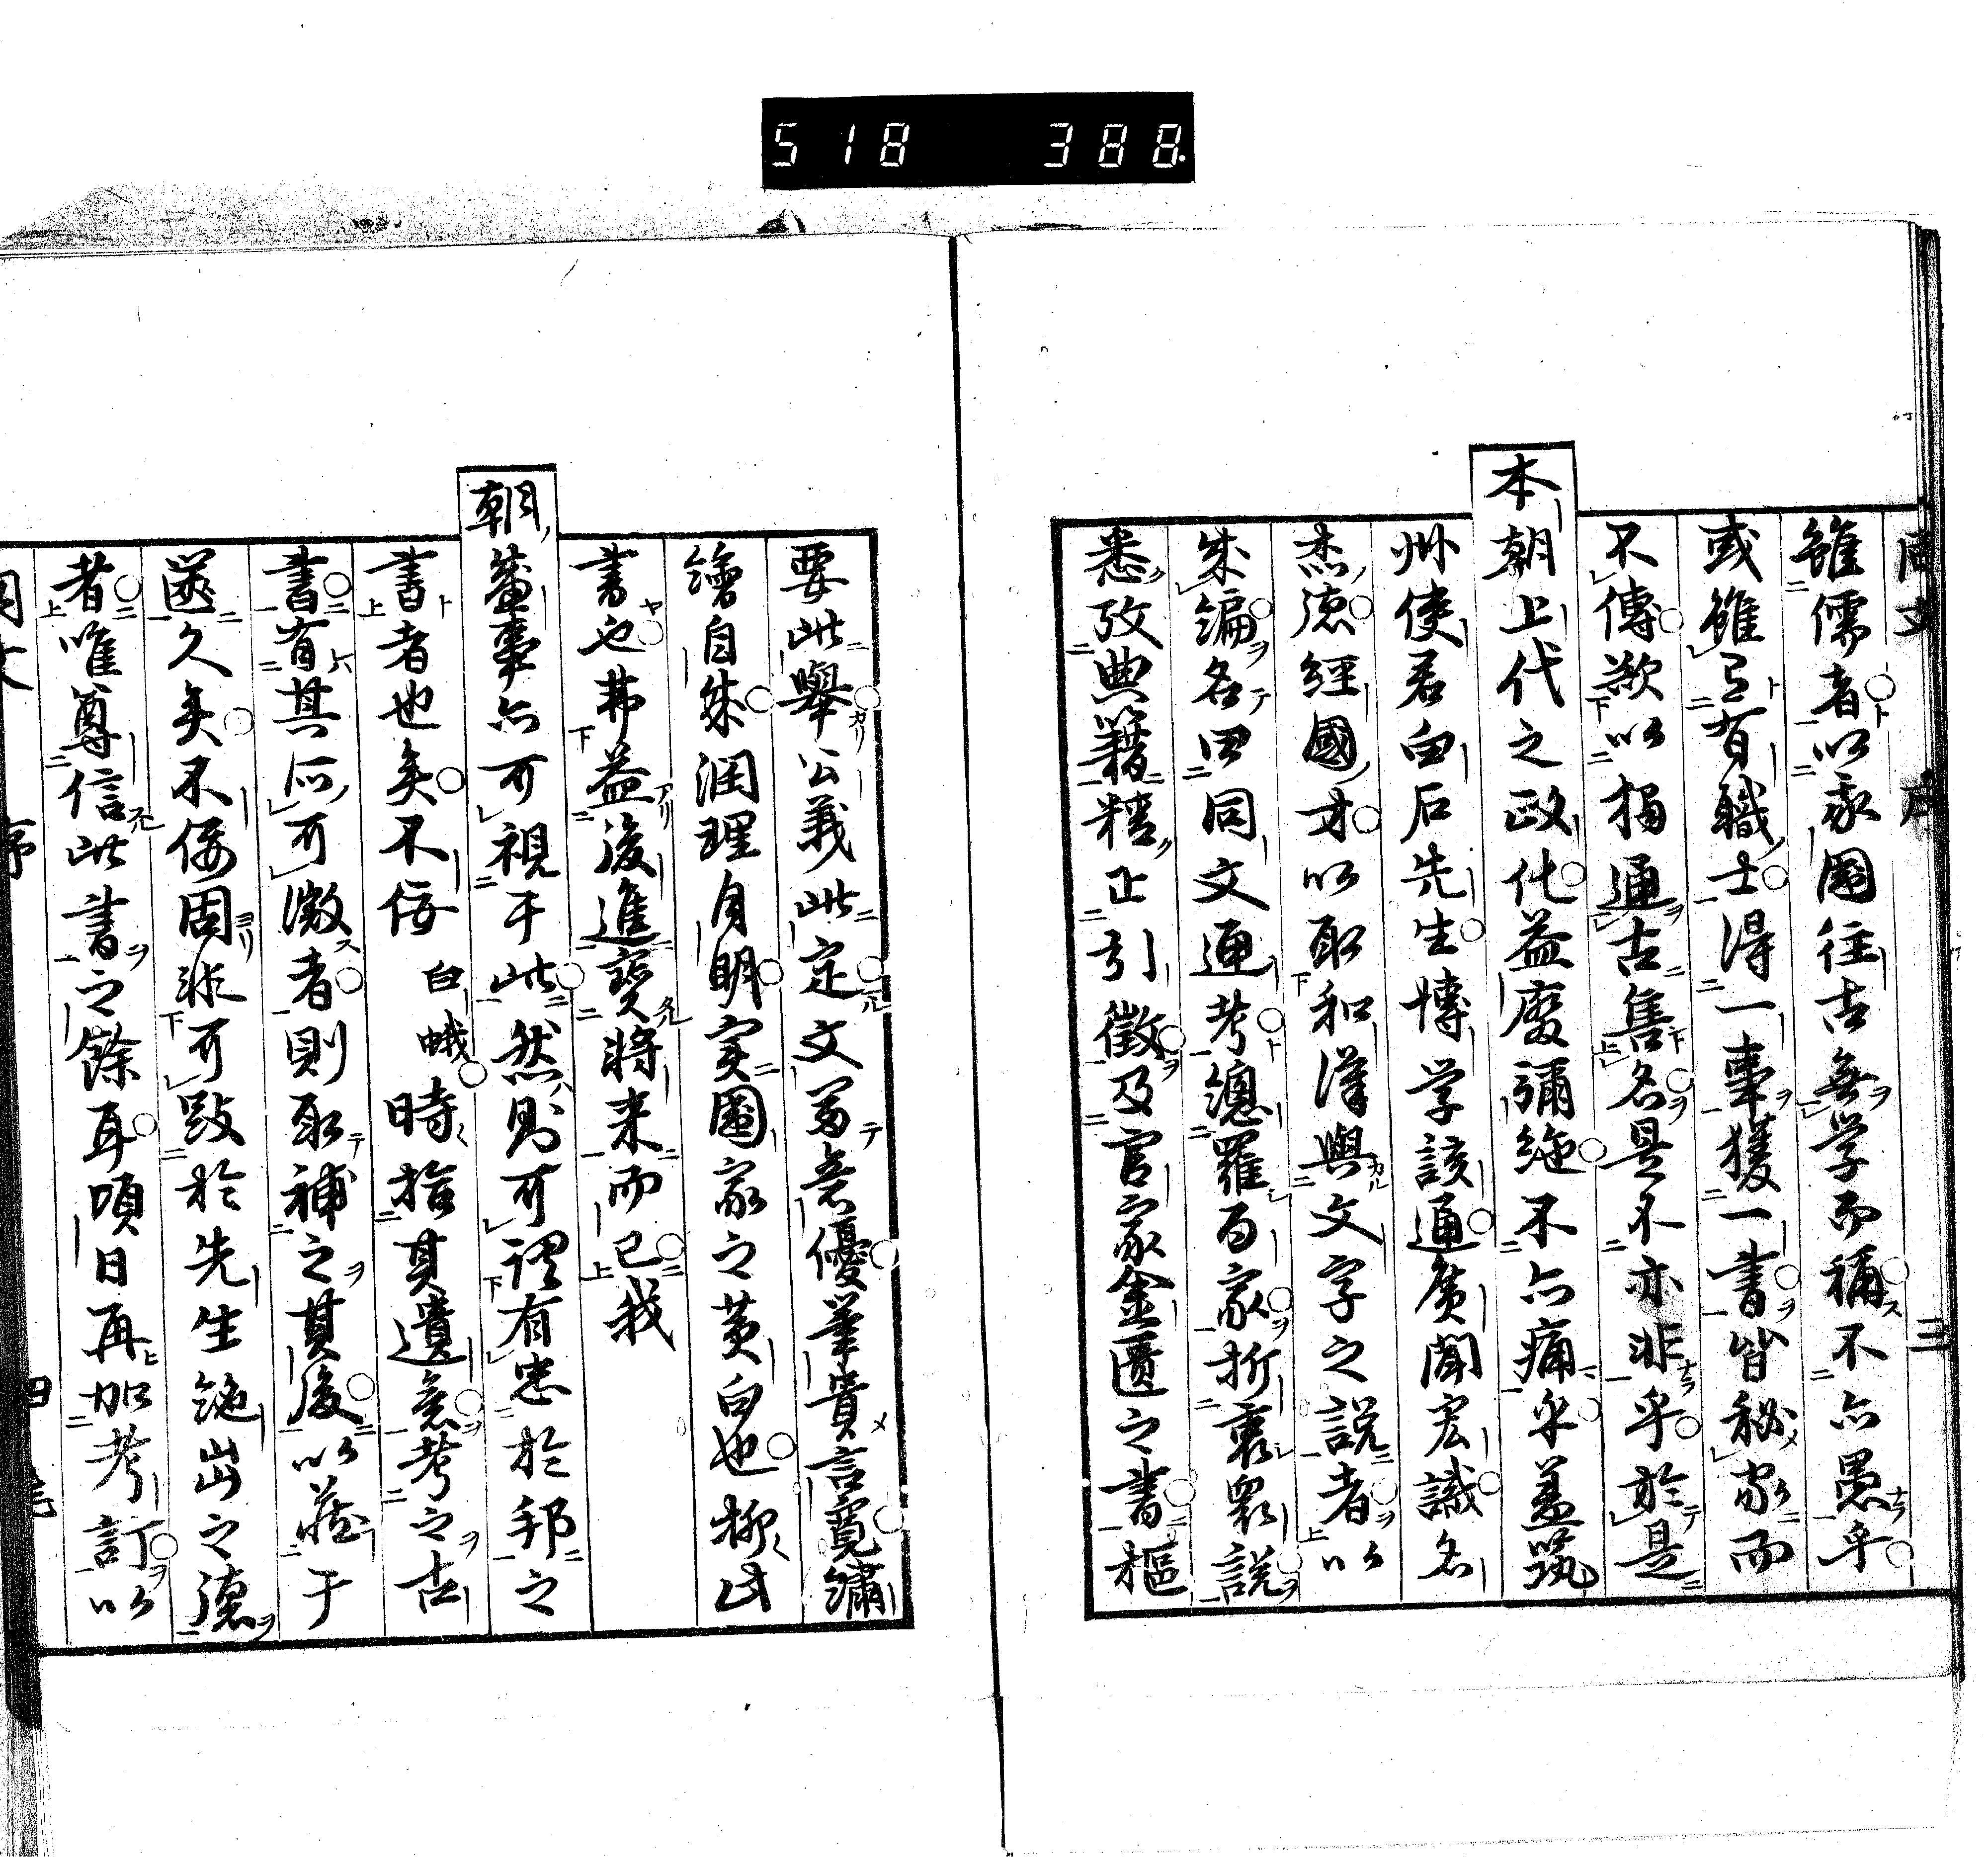 518 388
同文 序 三
雖儒者以我國往古無学而稱不亦愚乎
或雖適有職士得一事獲一書皆秘家而
不傳欺以獨通古售名是不亦非乎於是
本朝上代之政化益廢彌絶不亦痛乎蓋筑
州使君白石先生博学該通廣聞宏識名
杰德經國才以取和漢與文字之説者以
朱編名曰同文通考總羅百家折衷衆説
悉攷典籍精正引徵及官家金匱之書樞
要此舉公義此定文豈優筆貴言寛繡
繪自朱潤理自明実國家之黄白也抑此
書也弗益後進寶將来而已我
朝盛事亦可視于此然則可謂有忠於邦之
書者也矣不佞白蛾時時拾其遺意考之古
書有其所可徴者則取補之其後以藏于
篋久矣不佞固非可毀於先生絶出之德
者唯尊信此書之餘耳頃日再加考訂以
序